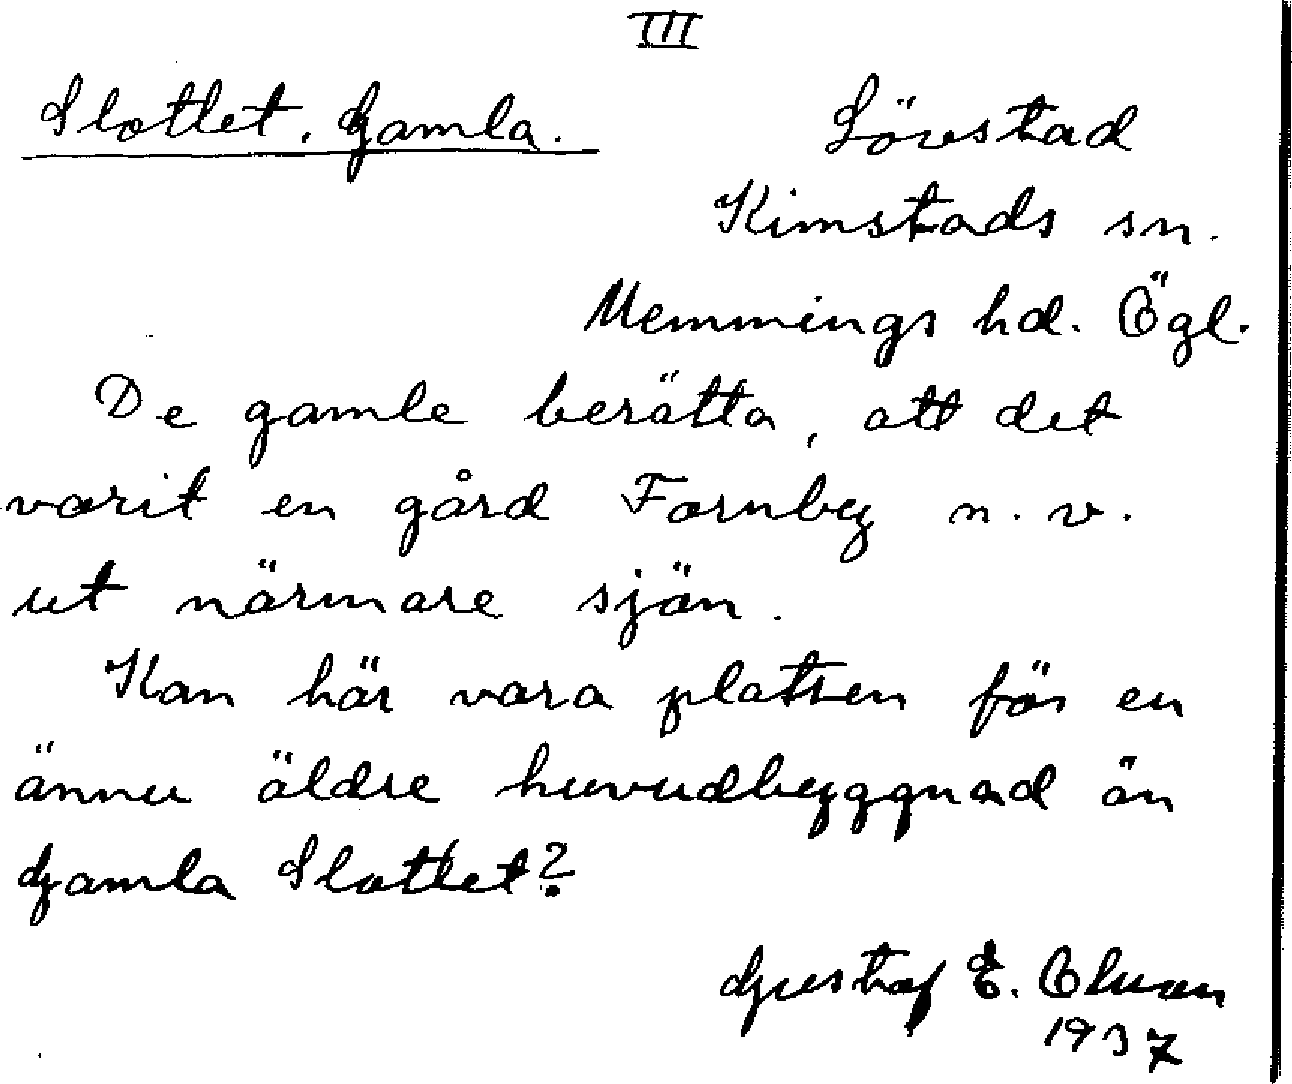 III
Slottet, Gamla. Lövstad
Kimstads sn.
Memmings hd. Ögl.
De gamle berätta, att det
varit en gård Farnby n. v.
ut närmare sjön.
Kan här vara platsen för en
ännu äldre huvudbyggnad än
Gamla Slottet?
Gustaf E. Olson
1937